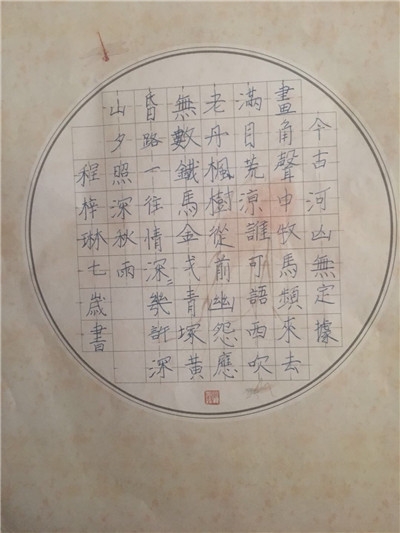 今古河山無定據
畫角聲中牧馬頻來去
滿目荒涼誰可語西吹
老丹楓樹從前幽怨應
無數鐵馬金戈青塚黃
昏路一往情深〻幾許深
山夕照深秋雨
程梓琳七歲書